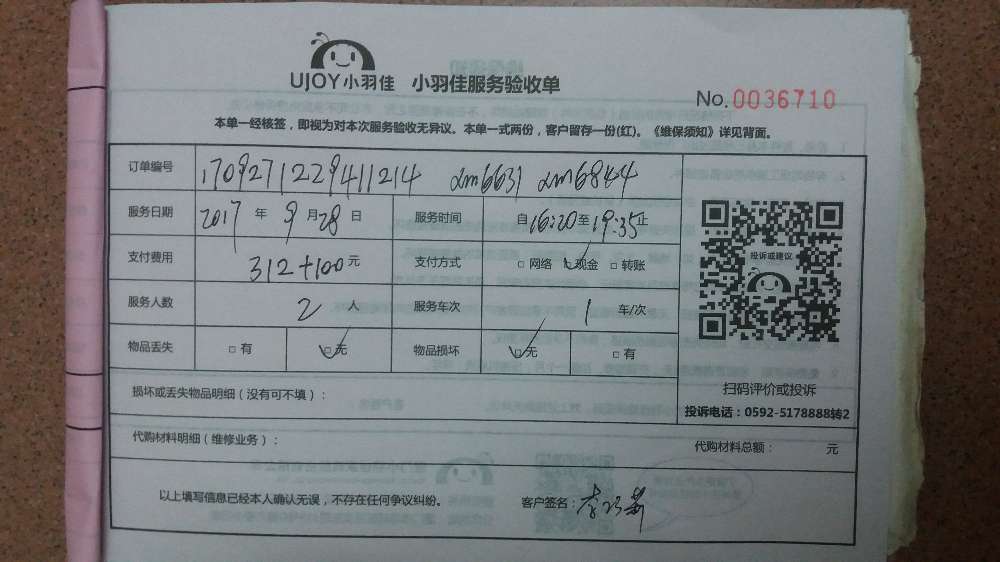 UJOY小羽佳 小羽佳服务验收单
No.0036710
本单一经核签，即视为对本次服务验收无异议。本单一式两份，客户留存一份(红)。《维保须知》详见背面。
订单编号 170927122941１214 dm6631 dm6844
服务日期 2017 年 9 月 28 日 服务时间 自 16:20 至 19:35 止
支付费用 312+100 元 支付方式 □ 网络 ☑ 现金 □ 转账
服务人数 2 人 服务车次 1 车/次
物品丢失 □ 有 ☑ 无 物品损坏 ☑ 无 □ 有
投诉或建议
扫码评价或投诉
投诉电话：0592-5178888转2
损坏或丢失物品明细（没有可不填）：
代购材料明细（维修业务）： 代购材料总额： 元
以上填写信息已经本人确认无误，不存在任何争议纠纷。 客户签名：